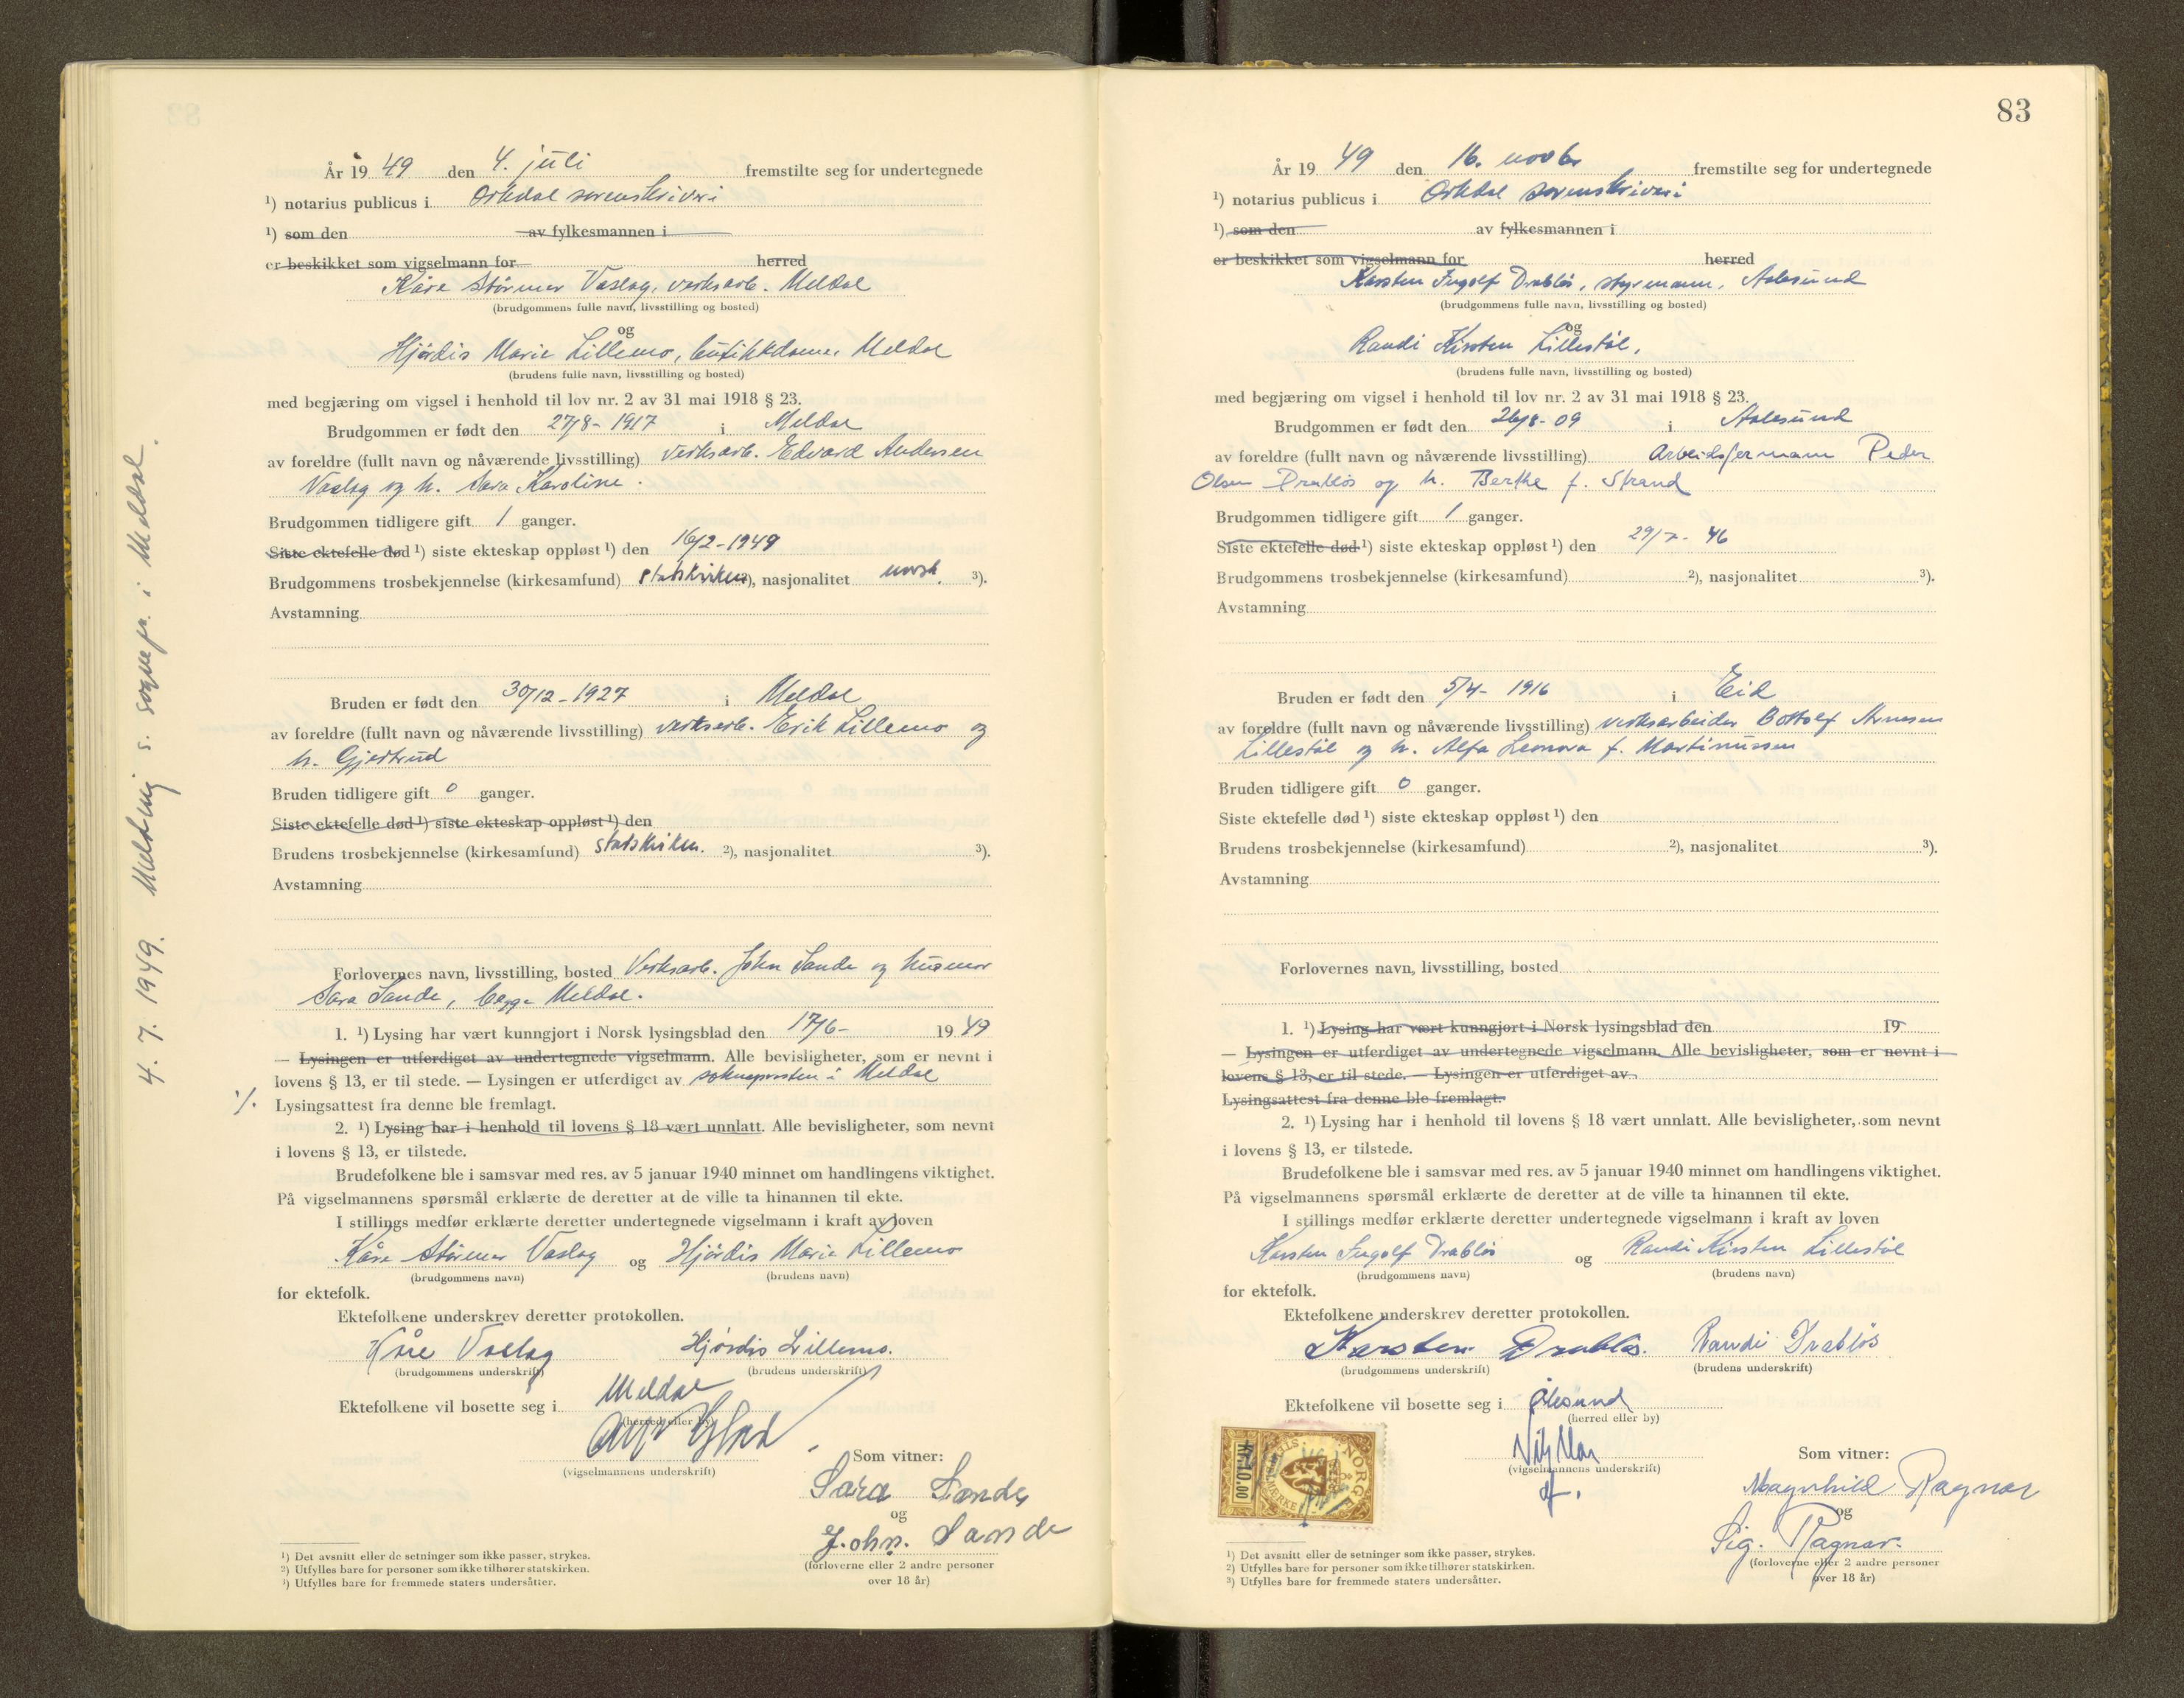 År 19 49 den 4. juli fremstilte seg for undertegnede
¹) notarius publicus i Orkdal sorenskriveri
¹) som den av fylkesmannen i
er beskikket som vigselmann for herred
Kåre Størmer Vaslag, verksarb. Meldal
(brudgommens fulle navn, livsstilling og bosted)
og
Hjördis Marie Lillemo, butikkdame, Meldal
(brudens fulle navn, livsstilling og bosted)
med begjæring om vigsel i henhold til lov nr. 2 av 31 mai 1918 § 23.
Brudgommen er født den 27/8- 1917 i Meldal
av foreldre (fullt navn og nåværende livsstilling) verksarb. Edvard Andersen
Vaslag og h. Sara Karoline.
Brudgommen tidligere gift 1 ganger.
Siste ektefelle død ¹) siste ekteskap oppløst ¹) den 16/2-1949
Brudgommens trosbekjennelse (kirkesamfund) statskirken ²), nasjonalitet norsk. ³).
Avstamning
Bruden er født den 30/12-1927 i Meldal
av foreldre (fullt navn og nåværende livsstilling) verksarb. Erik Lillemo og
h. Gjertrud
Bruden tidligere gift 0 ganger.
Siste ektefelle død ¹) siste ekteskap oppløst ¹) den
Brudens trosbekjennelse (kirkesamfund) statskirken. ²), nasjonalitet ³).
Avstamning
Forlovernes navn, livsstilling, bosted Verksarb. John Sande og husmor
Sara Sande, begge Meldal.
1. ¹) Lysing har vært kunngjort i Norsk lysingsblad den 17/6- 19 49
— Lysingen er utferdiget av undertegnede vigselmann. Alle bevisligheter, som er nevnt i
lovens § 13, er til stede. — Lysingen er utferdiget av sokneprsten i Meldal
·/. Lysingsattest fra denne ble fremlagt.
2. ¹) Lysing har i henhold til lovens § 18 vært unnlatt. Alle bevisligheter, som nevnt
i lovens § 13, er tilstede.
Brudefolkene ble i samsvar med res. av 5 januar 1940 minnet om handlingens viktighet.
På vigselmannens spørsmål erklærte de deretter at de ville ta hinannen til ekte.
I stillings medfør erklærte deretter undertegnede vigselmann i kraft av loven
Kåre Størmer Vaslag og Hjördis Marie Lillemo
(brudgommens navn) (brudens navn)
for ektefolk.
Ektefolkene underskrev deretter protokollen.
Kåre Vaslag Hjørdis Lillemo.
(brudgommens underskrift) (brudens underskrift)
Ektefolkene vil bosette seg i Meldal
(herred eller by)
(vigselmannens underskrift)
Som vitner:
Sara Sande
og
John. Sande
(forloverne eller 2 andre personer
over 18 år)
¹) Det avsnitt eller de setninger som ikke passer, strykes.
²) Utfylles bare for personer som ikke tilhører statskirken.
³) Utfylles bare for fremmede staters undersåtter.
4. 7. 1949. Melding s. sognepr. i Meldal.
83
År 19 49 den 16. novbr fremstilte seg for undertegnede
¹) notarius publicus i Orkdal sorenskriveri
¹) som den av fylkesmannen i
er beskikket som vigselmann for herred
Karsten Ingolf Drabløs, styrmann, Aalesund
(brudgommens fulle navn, livsstilling og bosted)
og
Randi Kirsten Lillestøl,
(brudens fulle navn, livsstilling og bosted)
med begjæring om vigsel i henhold til lov nr. 2 av 31 mai 1918 § 23.
Brudgommen er født den 26/8- 09 i Aalesund
av foreldre (fullt navn og nåværende livsstilling) Arbeidsformann Peder
Olsen Drabløs og h. Berthe f. Strand
Brudgommen tidligere gift 1 ganger.
Siste ektefelle død ¹) siste ekteskap oppløst ¹) den 29/7- 46
Brudgommens trosbekjennelse (kirkesamfund) ²), nasjonalitet ³).
Avstamning
Bruden er født den 5/4- 1916 i Eid
av foreldre (fullt navn og nåværende livsstilling) verksarbeider Bottolf Arnesen
Lillestøl og h. Alfa Leonora f. Martinussen
Bruden tidligere gift 0 ganger.
Siste ektefelle død ¹) siste ekteskap oppløst ¹) den
Brudens trosbekjennelse (kirkesamfund) ²), nasjonalitet ³).
Avstamning
Forlovernes navn, livsstilling, bosted
1. ¹) Lysing har vært kunngjort i Norsk lysingsblad den 19
— Lysingen er utferdiget av undertegnede vigselmann. Alle bevisligheter, som er nevnt i
lovens § 13, er til stede. — Lysingen er utferdiget av
Lysingsattest fra denne ble fremlagt.
2. ¹) Lysing har i henhold til lovens § 18 vært unnlatt. Alle bevisligheter, som nevnt
i lovens § 13, er tilstede.
Brudefolkene ble i samsvar med res. av 5 januar 1940 minnet om handlingens viktighet.
På vigselmannens spørsmål erklærte de deretter at de ville ta hinannen til ekte.
I stillings medfør erklærte deretter undertegnede vigselmann i kraft av loven
Karsten Ingolf Drabløs og Randi Kirsten Lillestøl
(brudgommens navn) (brudens navn)
for ektefolk.
Ektefolkene underskrev deretter protokollen.
Karsten Drabløs. Randi Drabløs
(brudgommens underskrift) (brudens underskrift)
Ektefolkene vil bosette seg i Ålesund
(herred eller by)
(vigselmannens underskrift)
NORGE
Kr. 10.00
Som vitner:
Magnhild Ragnar
og
Sig. Ragnar.
(forloverne eller 2 andre personer
over 18 år)
¹) Det avsnitt eller de setninger som ikke passer, strykes.
²) Utfylles bare for personer som ikke tilhører statskirken.
³) Utfylles bare for fremmede staters undersåtter.